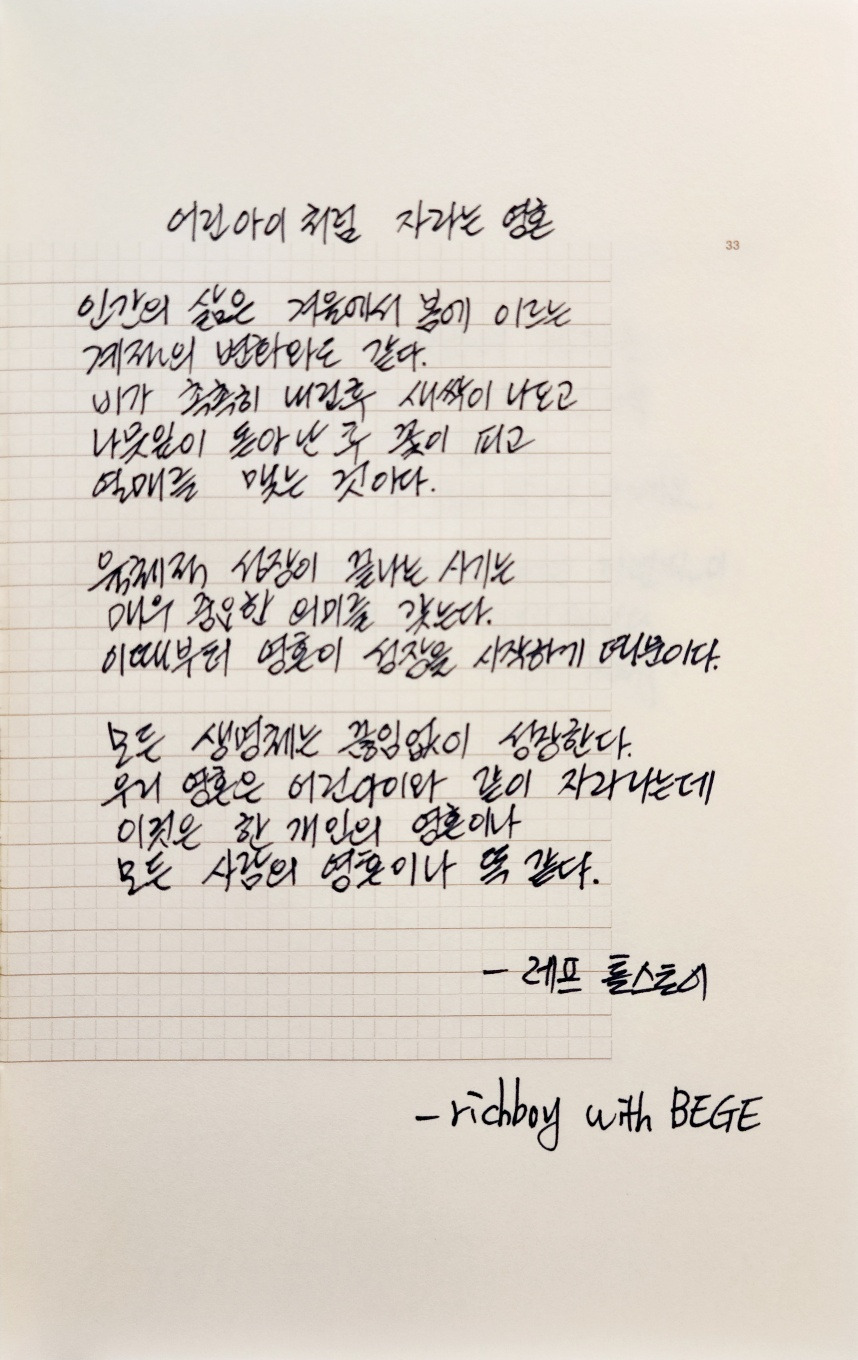 어린아이처럼 자라는 영혼
33
인간의 삶은 겨울에서 봄에 이르는
계절의 변화와도 같다.
비가 촉촉히 내린후 새싹이 나오고
나뭇잎이 돋아난 후 꽃이 피고
열매를 맺는 것이다.
육체적 성장이 끝나는 시기는
매우 중요한 의미를 갖는다.
이때부터 영혼이 성장을 시작하기 때문이다.
모든 생명체는 끊임없이 성장한다.
우리 영혼은 어린아이와 같이 자라나는데
이것은 한 개인의 영혼이나
모든 사람의 영혼이나 똑같다.
- 레프 톨스토이
- richboy with BEGE